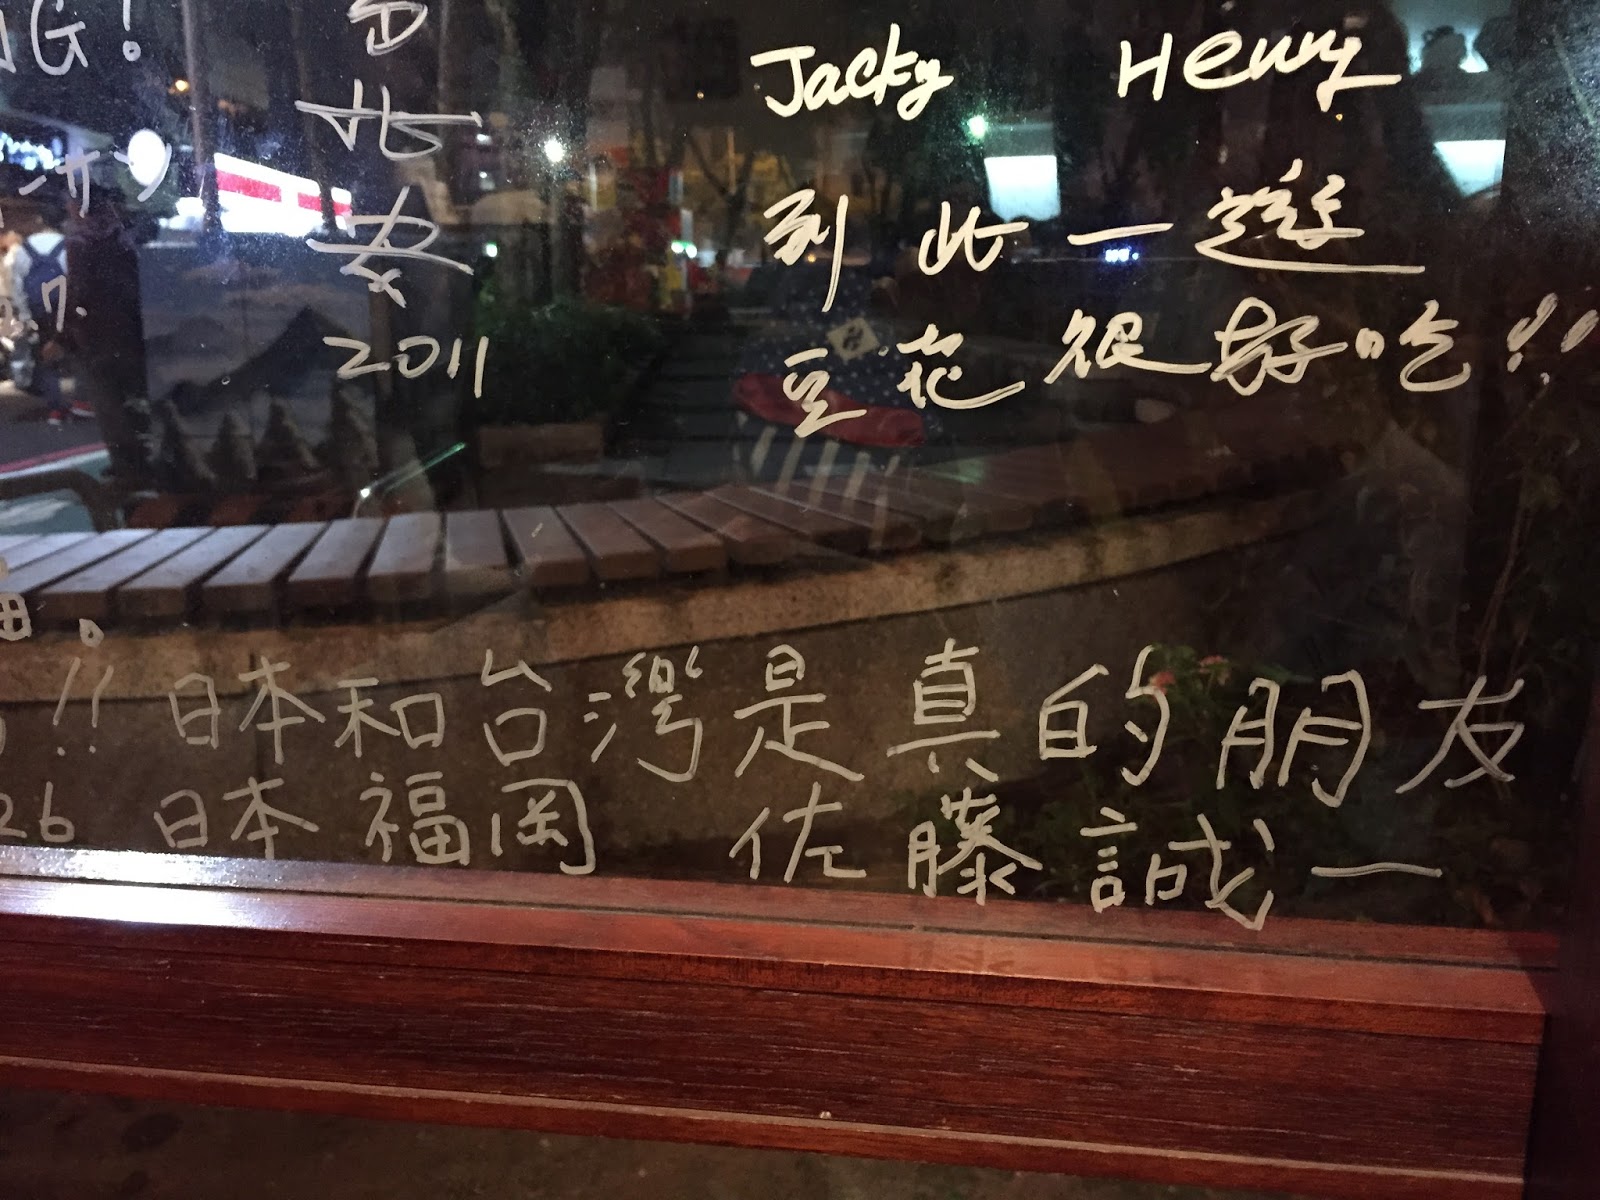 G!
Jacky Henry
到此一遊
豆花很好吃!!
ンサン
2011
!! 日本和台灣是真的朋友
26 日本 福岡 佐藤誠一